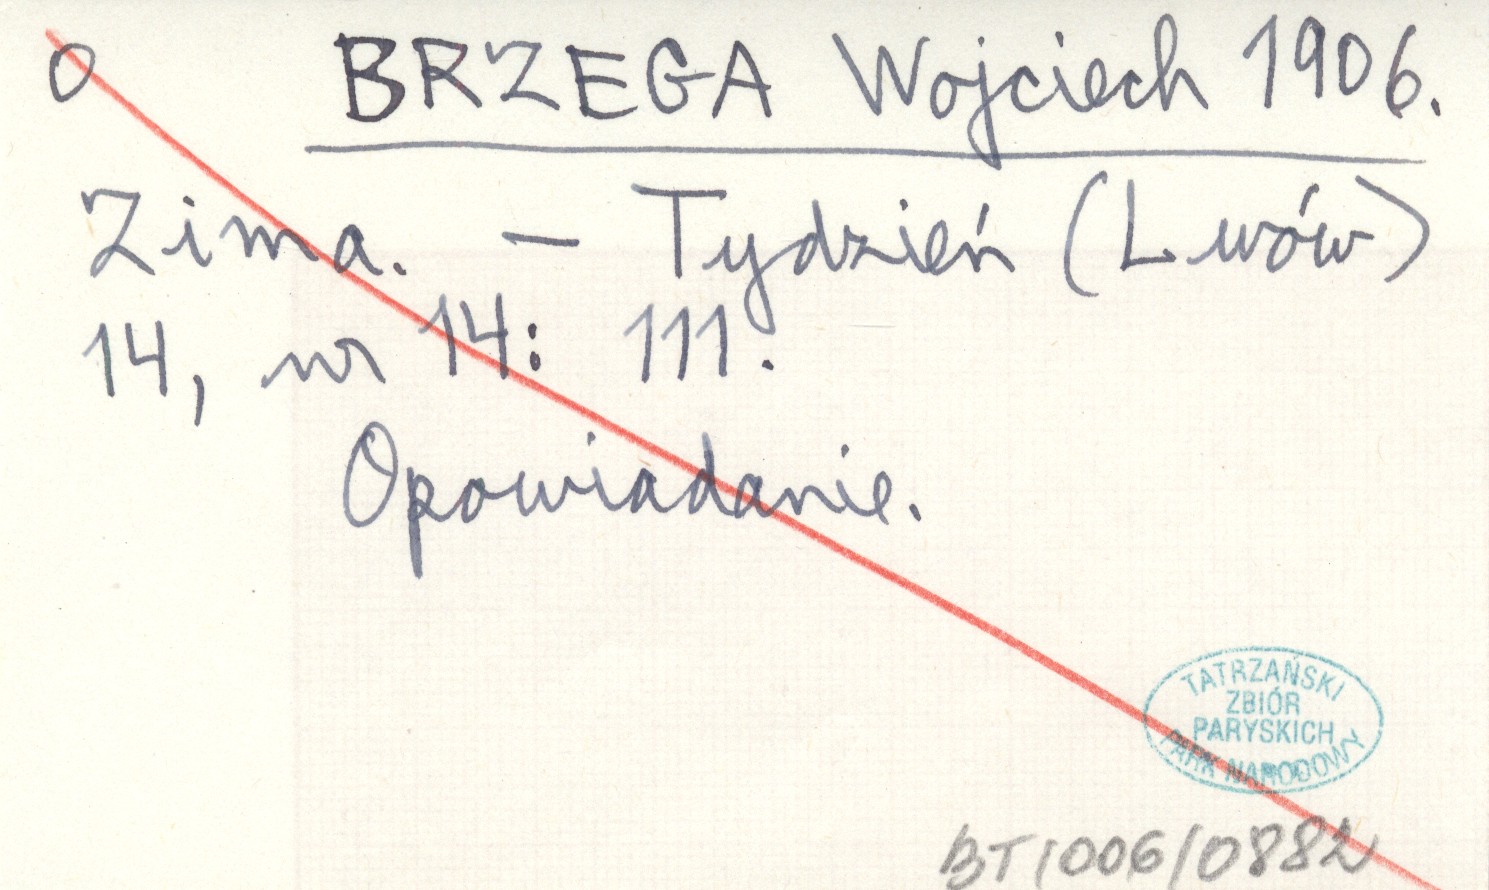 O BRZEGA Wojciech 1906.
Zima. — Tydzień (Lwów)
14, nr 14: 111.
Opowiadanie.
TATRZAŃSKI
ZBIÓR
PARYSKICH
PARK NARODOWY
BT/006/0882